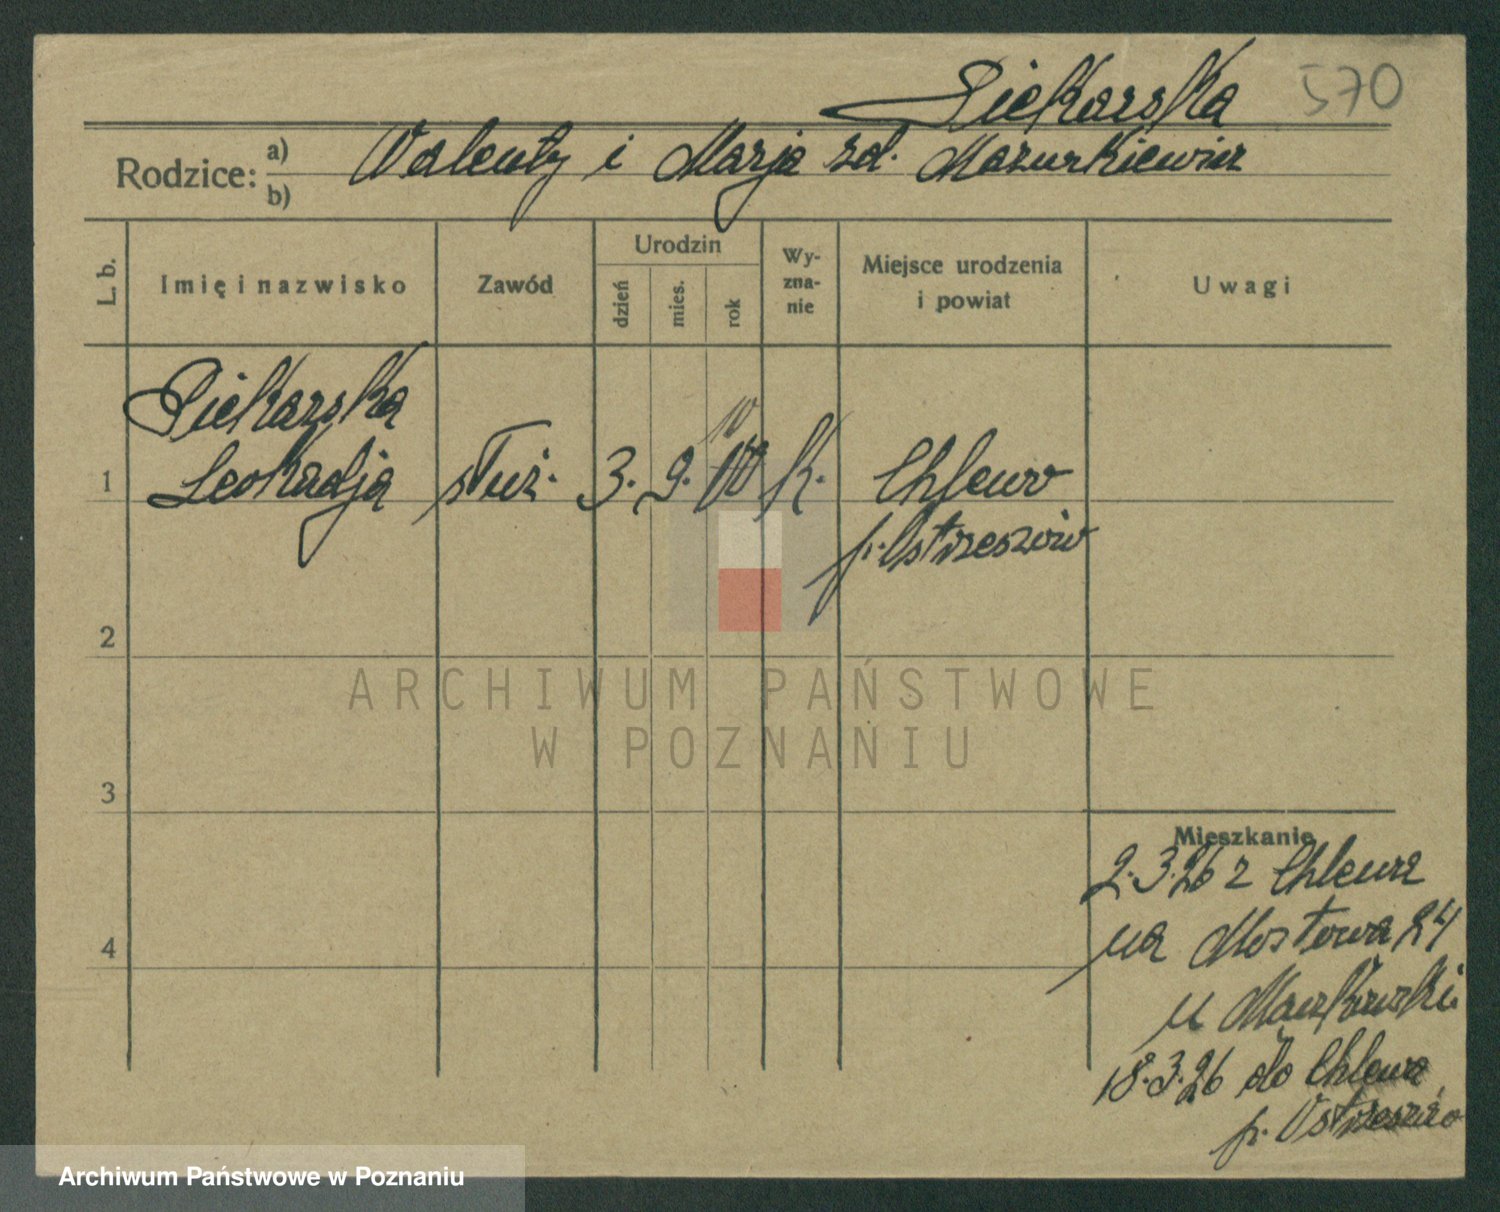 Piekarska 570
Rodzice: a) b) Walenty i Marja zd. Mazurkiewicz
L. b.
Imię i nazwisko
Zawód
Urodzin
dzień
mies.
rok
Wy-
zna-
nie
Miejsce urodzenia
i powiat
Uwagi
Piekarska
10
1 Leokadja służ. 3. 9. 10 k. Chlewo
p. Ostrzeszów
2
ARCHIWUM PAŃSTWOWE
W POZNANIU
3
Mieszkanie
2.3.26 z Chlewa
na Mostowa 24
u
18.3.26 do Chlewa
p. Ostrzeszów
4
Archiwum Państwowe w Poznaniu